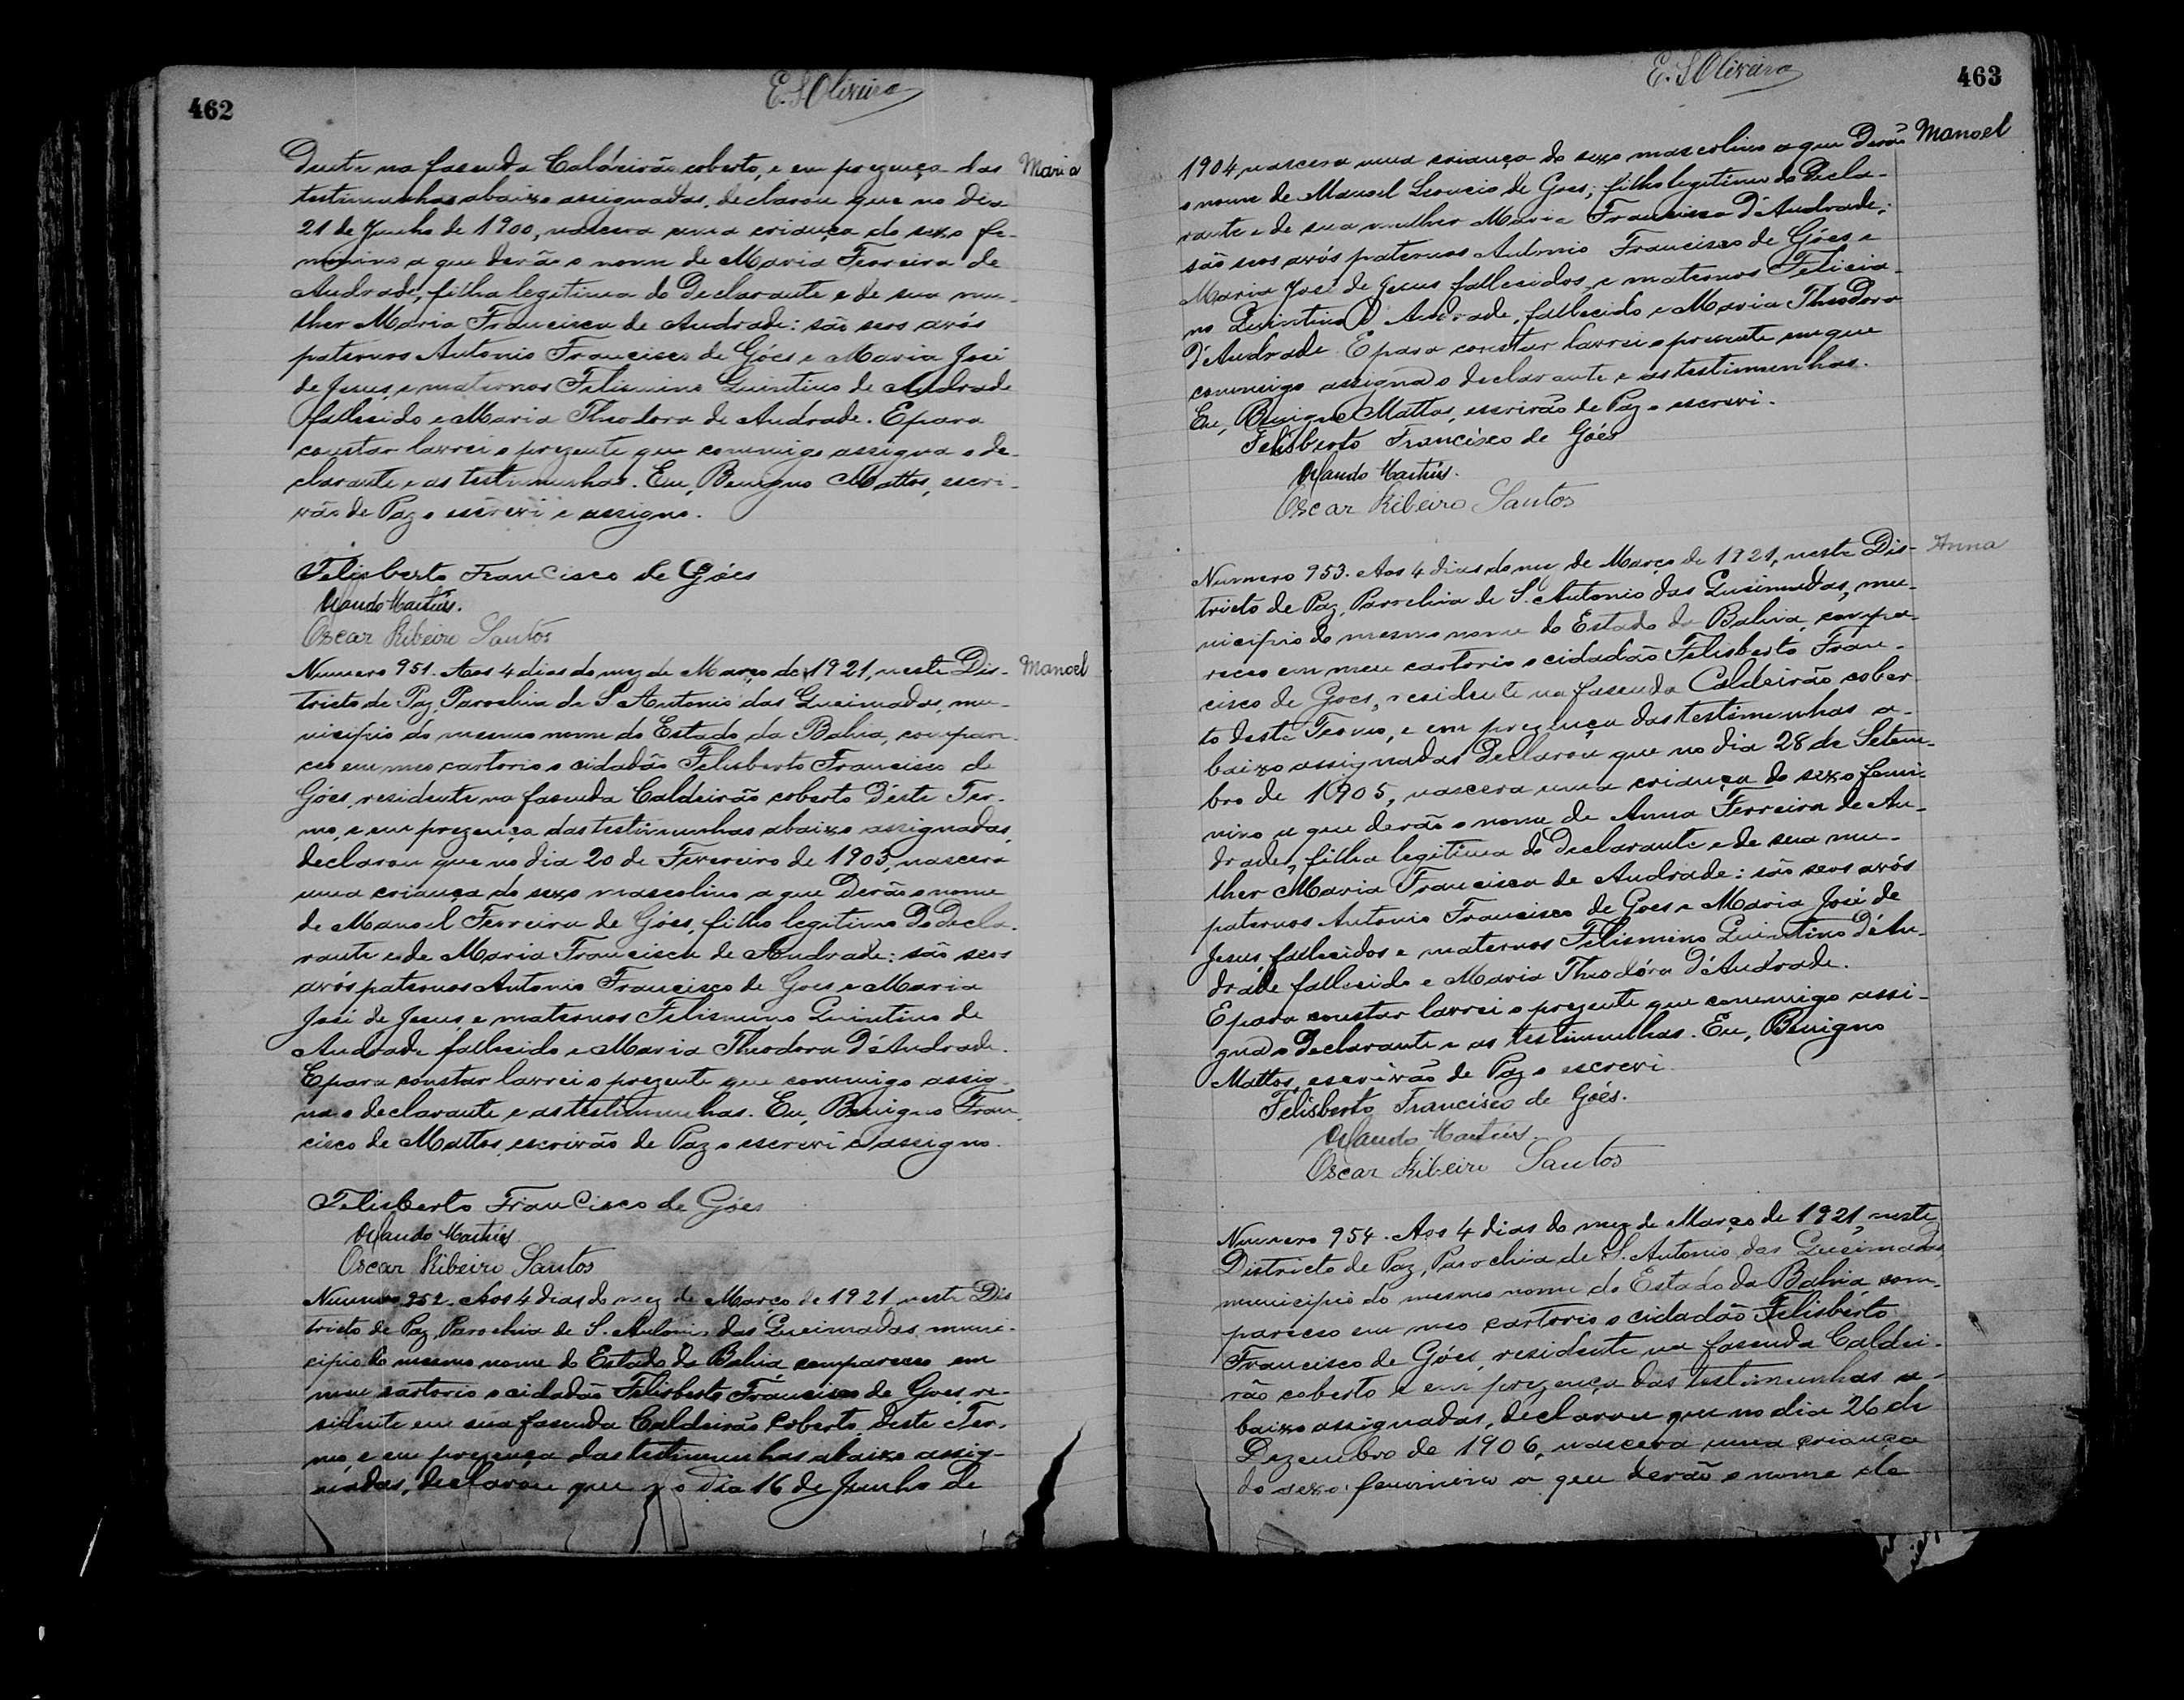 462
E. S. Oliveira
dente na fasenda Caldeirão coberto, e em prezença das
Maria
testimunhas abaixo assignadas, declarou que no dia
21 de Junho de 1900, nascera uma criança do sexo fe-
minino a que derão o nome de Maria Ferreira de
Andrade, filha legitima do Declarante e de sua mu-
lher Maria Francisca de Andrade: são seos avós
paternos Antonio Francisco de Góes e Maria José
de Jesus, e maternos Felismino Quintino de Andrade
fallecido e Maria Theodora de Andrade. E para
constar lavrei o prezente que commigo assigna o de-
clarante e as testimunhas. Eu, Benigno Mattos, escri-
vão de Paz o escrevi e assigno.
Felisberto Francisco de Góes
Orlando Martins.
Oscar Ribeiro Santos
Numero 951. Aos 4 dias do mez de Março de 1921, neste Dis-
Manoel
tricto de Paz, Parochia de S. Antonio das Queimadas, mu-
nicipio do mesmo nome do Estado da Bahia, compare-
ceo em meo cartorio o cidadão Felisberto Francisco de
Góes, residente na fasenda Caldeirão coberto d'éste Ter-
mo, e em prezença das testimunhas abaixo assignadas,
declarou que no dia 20 de Fevereiro de 1903, nascera
uma criança do sexo mascolino a que Derão o nome
de Manoel Ferreira de Góes, filho legitimo do Decla-
rante e de Maria Francisca de Andrade: são seos
avós paternos Antonio Francisco de Goes e Maria
José de Jesus, e maternos Felismino Quintino de
Andrade fallecido e Maria Theodora d'Andrade.
E para constar lavrei o prezente que commigo assig-
na o declarante e as testimunhas. Eu, Benigno Fran-
cisco de Mattos, escrivão de Paz o escrevi e assigno.
Felisberto Francisco de Góes
Orlando Martins
Oscar Ribeiro Santos
Numero 952. Aos 4 dias do mez de Março de 1921, neste Dis
tricto de Paz, Parochia de S. Antonio das Queimadas, muni-
cipio do mesmo nome do Estado da Bahia compareceo em
meu cartorio o cidadão Felisberto Francisco de Goes, re-
sidente em sua fasenda Caldeirão Coberto, deste Ter-
mo, e em prezença das testimunhas abaixo assig-
nadas, declarou que no dia 16 de Junho de
E. S. Oliveira
463
1904, nascera uma criança do sexo mascolino a que Derão
Manoel
o nome de Manoel Leoncio de Goes; filho legitimo do Decla-
rante e de sua mulher Maria Francisca d'Andrade;
são seos avós paternos Antonio Francisco de Góes e
Maria José de Jesus fallecidos, e maternos Felicia-
no Quintino d'Andrade, fallecido e Maria Theodora
d'Andrade. E para constar lavrei o prezente em que
commigo assigna o declarante e as testimunhas.
Eu, Benigno Mattos, escrivão de Paz o escrevi.
Felisberto Francisco de Góes
Orlando Martins.
Oscar Ribeiro Santos
Numero 953. Aos 4 dias do mez de Março de 1921, neste Dis-
Anna
tricto de Paz, Parochia de S. Antonio das Queimadas, mu-
nicipio do mesmo nome do Estado da Bahia, compa-
receo em meu cartorio o cidadão Felisberto Fran-
cisco de Goes, residente na fasenda Caldeirão cober
to deste Termo, e em prezença das testimunhas a-
baixo assignadas Declarou que no dia 28 de Setem-
bro de 1905, nascera uma criança do sexo femi-
nino a que derão o nome de Anna Ferreira de An-
drade, filha legitima do Declarante e de sua mu-
lher Maria Francisca de Andrade: são seos avós
paternos Antonio Francisco de Goes e Maria José de
Jesus, fallecidos e maternos Felismino Quintino d'An-
drade fallecido e Maria Theodóra d'Andrade.
E para constar lavrei o prezente que commigo assi-
gna o Declarante e as testimunhas. Eu, Benigno
Mattos, escrivão de Paz o escrevi
Felisberto Francisco de Góes.
Orlando Martins.
Oscar Ribeiro Santos
Numero 954. Aos 4 dias do mez de Março de 1921, neste
Districto de Paz, Parochia de S. Antonio das Queimadas,
municipio do mesmo nome do Estado da Bahia com-
pareceo em meo cartorio o cidadão Felisberto
Francisco de Góes, residente na fasenda Caldei-
rão coberto e em prezença das testimunhas a-
baixo assignadas, declarou que no dia 26 de
Dezembro de 1906, nascera uma criança
do sexo feminino a que derão o nome de